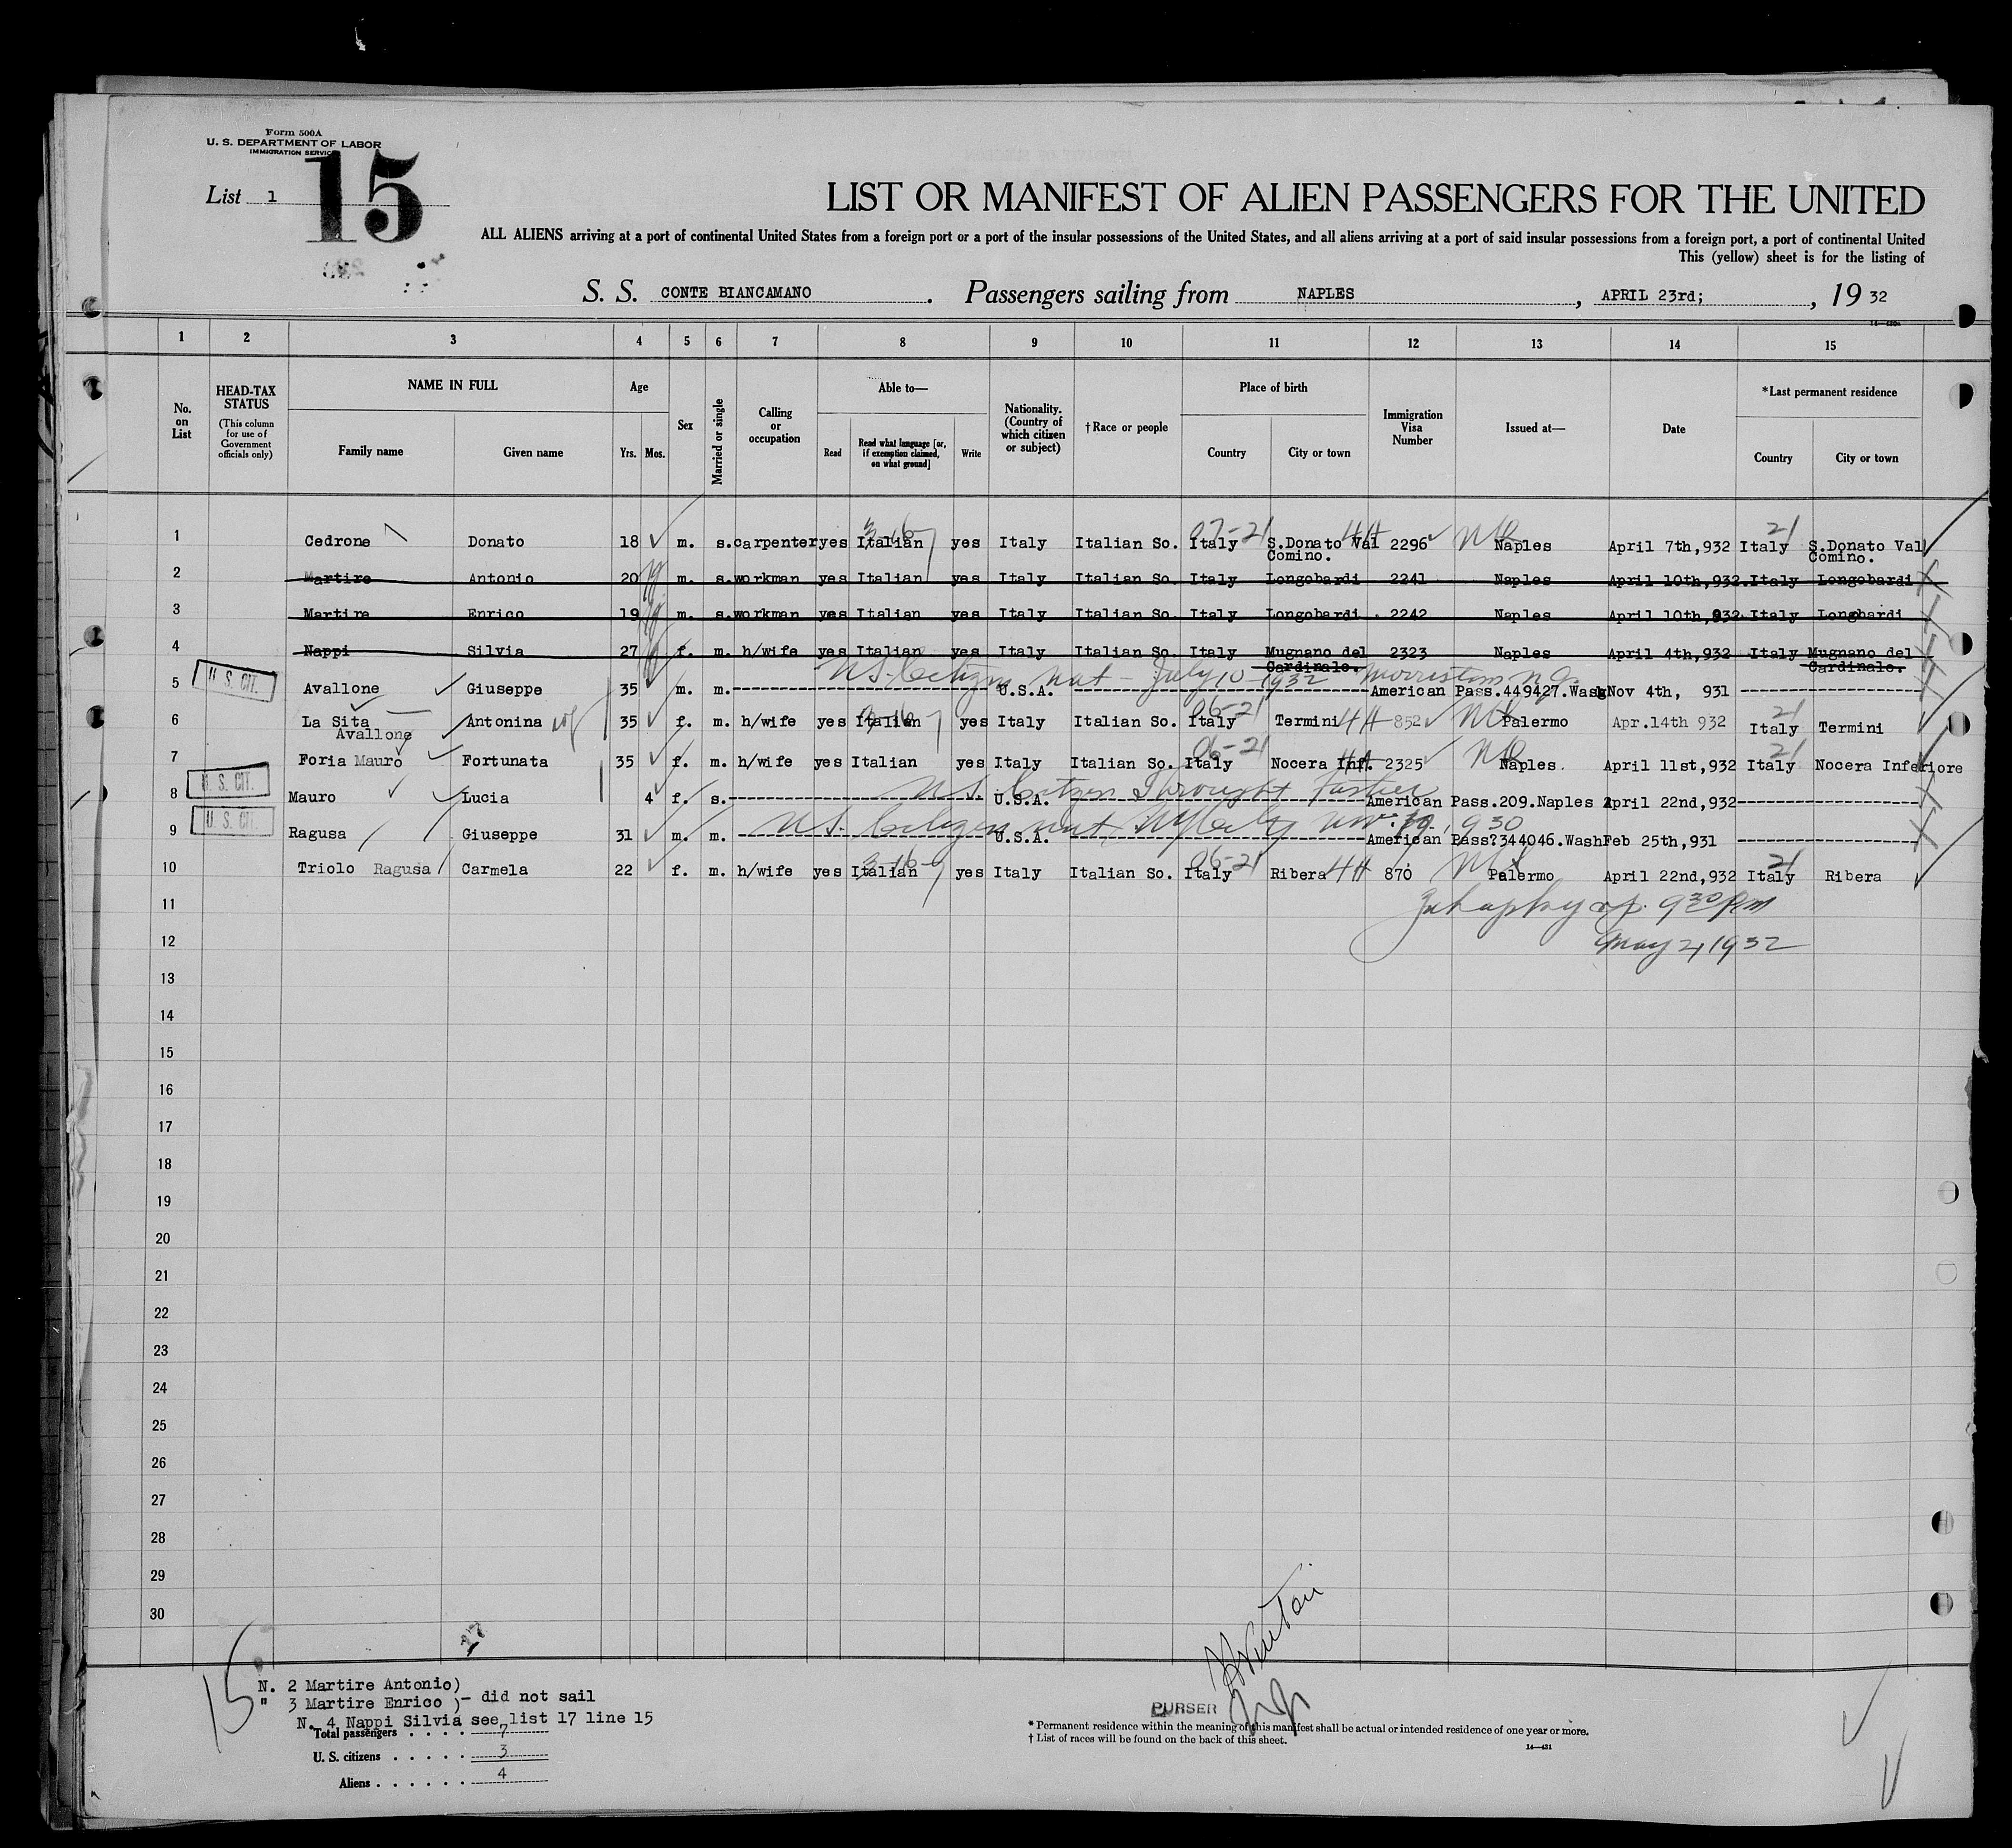 Form 500A
U. S. DEPARTMENT OF LABOR
IMMIGRATION SERVICE
List 1
15
LIST OR MANIFEST OF ALIEN PASSENGERS FOR THE UNITED
ALL ALIENS arriving at a port of continental United States from a foreign port or a port of the insular possessions of the United States, and all aliens arriving at a port of said insular possessions from a foreign port, a port of continental United
This (yellow) sheet is for the listing of
S. S. CONTE BIANCAMANO . Passengers sailing from NAPLES , APRIL 23rd; , 19 32
1 2 3 4 5 6 7 8 9 10 11 12 13 14 15
No. on List
HEAD-TAX STATUS (This column for use of Government officials only)
NAME IN FULL
Family name Given name
Age
Yrs. Mos.
Sex
Married or single
Calling or occupation
Able to—
Read Read what language [or, if exemption claimed, on what ground] Write
Nationality. (Country of which citizen or subject)
†Race or people
Place of birth
Country City or town
Immigration Visa Number
Issued at—
Date
*Last permanent residence
Country City or town
1 Cedrone Donato 18 m. s. carpenter yes Italian yes Italy Italian So. Italy S.Donato Val Comino. 2296 Naples April 7th,932 Italy S.Donato Val Comino.
2 Martire Antonio 20 m. s. workman yes Italian yes Italy Italian So. Italy Longobardi 2241 Naples April 10th,932. Italy Longobardi
3 Martire Enrico 19 m. s. workman yes Italian yes Italy Italian So. Italy Longobardi 2242 Naples April 10th,932 Italy Longobardi
4 Nappi Silvia 27 f. m. h/wife yes Italian yes Italy Italian So. Italy Mugnano del Cardinale. 2323 Naples April 4th,932 Italy Mugnano del Cardinale.
U. S. CIT.
U.S. Citizen nat - July 10 - 1932 Morristown N.J.
5 Avallone Giuseppe 35 m. m. U.S.A. American Pass.449427.Wash Nov 4th, 931
6 La Sita Avallone Antonina 35 f. m. h/wife yes Italian yes Italy Italian So. Italy Termini 852 Palermo Apr.14th 932 Italy Termini
7 Foria Mauro Fortunata 35 f. m. h/wife yes Italian yes Italy Italian So. Italy Nocera Inf. 2325 Naples. April 11st,932 Italy Nocera Inferiore
U. S. CIT.
U.S. Citizen through Father
8 Mauro Lucia 4 f. s. U.S.A. American Pass.209.Naples April 22nd,932
U. S. CIT.
U.S. Citizen nat NY City Nov. 930
9 Ragusa Giuseppe 31 m. m. U.S.A. American Pass?344046.Wash Feb 25th,931
10 Triolo Ragusa Carmela 22 f. m. h/wife yes Italian yes Italy Italian So. Italy Ribera 870 Palermo April 22nd,932 Italy Ribera
11 9 30 Pm
12 May 2, 1932
13
14
15
16
17
18
19
20
21
22
23
24
25
26
27
28
29
30
15
N. 2 Martire Antonio)
" 3 Martire Enrico )- did not sail
N. 4 Nappi Silvia see list 17 line 15
Total passengers . . . . 7
U. S. citizens . . . . . 3
Aliens . . . . . . 4
PURSER
* Permanent residence within the meaning of this manifest shall be actual or intended residence of one year or more.
† List of races will be found on the back of this sheet.
14—431